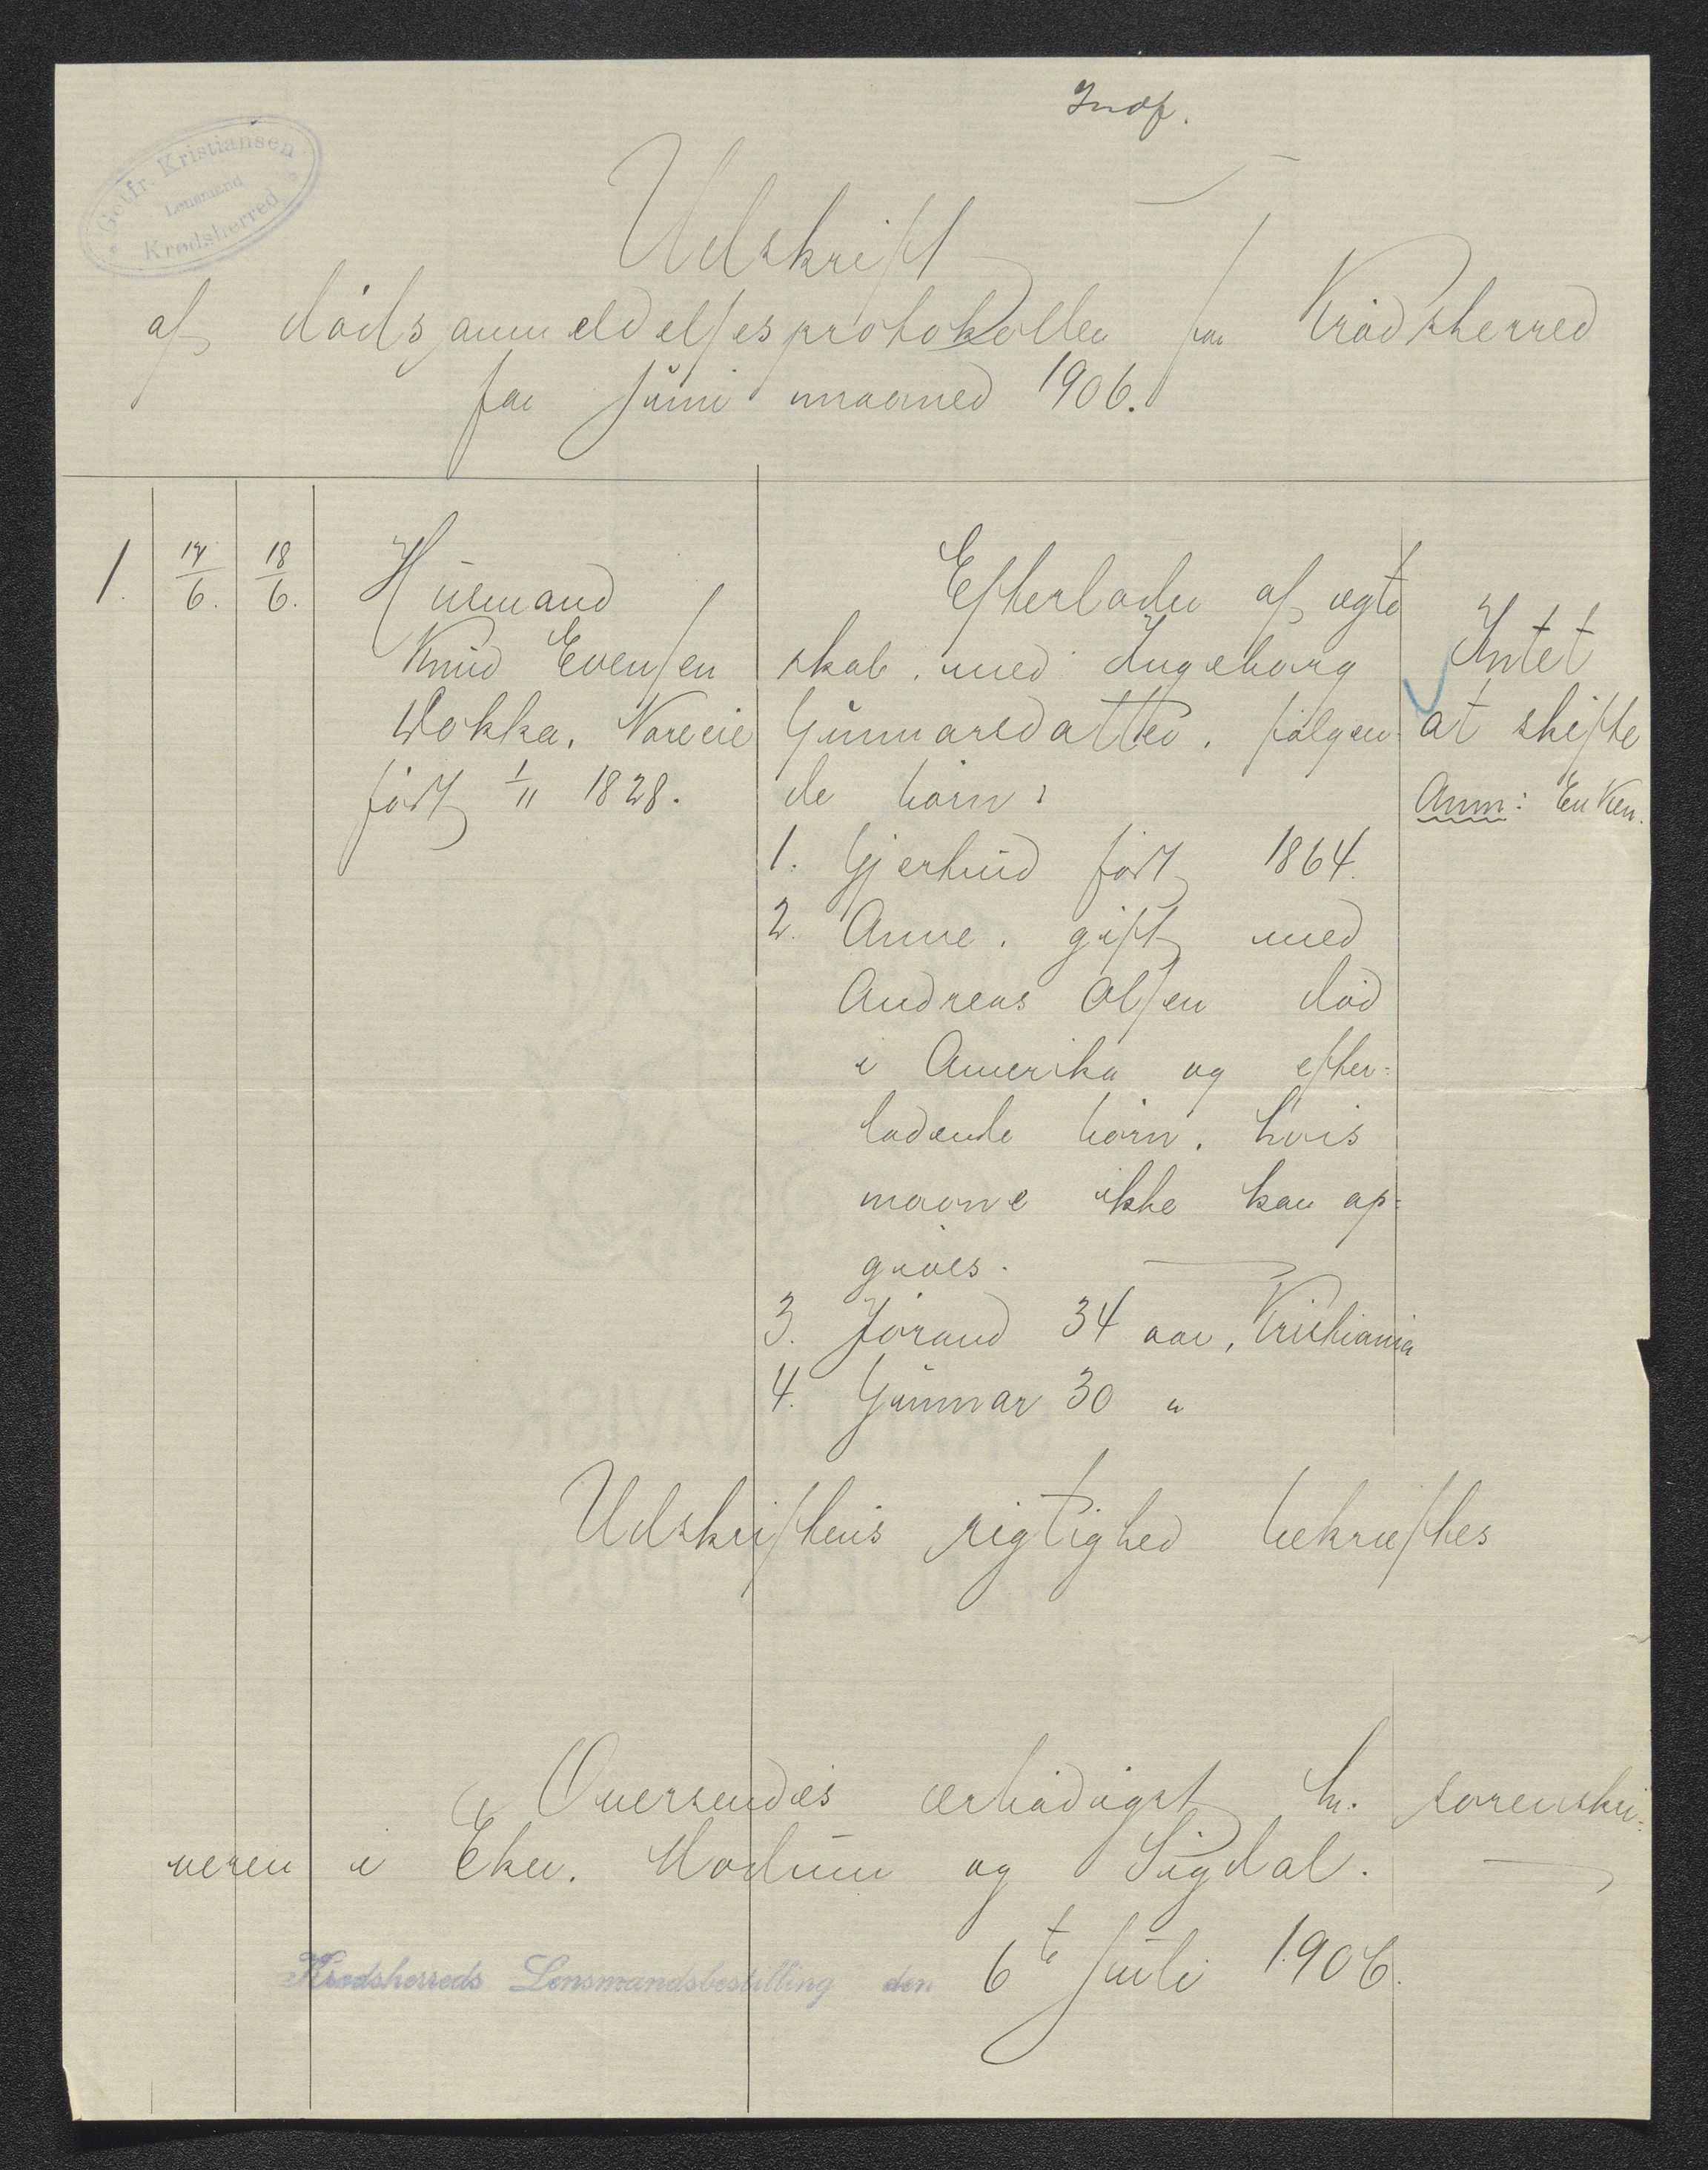 Indf.
Gotfr. Kristiansen
Lensmand
Krødsherred
Udskrift
af dødsanmeldelsesprotokollen for Krødsherred
for Juni maaned 1906.
1. 14/6. 18/6. Husmand
Knud Evensen
Wokka, Noreeie
født 1/11 1828.
Efterlader af ægte
skab med Ingeborg
Gunnarsdatter, følgen-
de børn:
1. Gjertrud født 1864.
2. Anne, gift med
Andreas Olsen død
i Amerika og efter-
ladende børn, hvis
navne ikke kan op-
gives.
3. Jørand 34 aar, Kristiania
4. Gunnar 30 "
Intet
at skifte
Anm: Enken.
Udskriftens rigtighed bekræftes
Oversendes ærbødigst hr. sorenskri-
veren i Eker, Modum og Sigdal.
Krødsherreds Lensmandsbestilling den 6te Juli 1906.